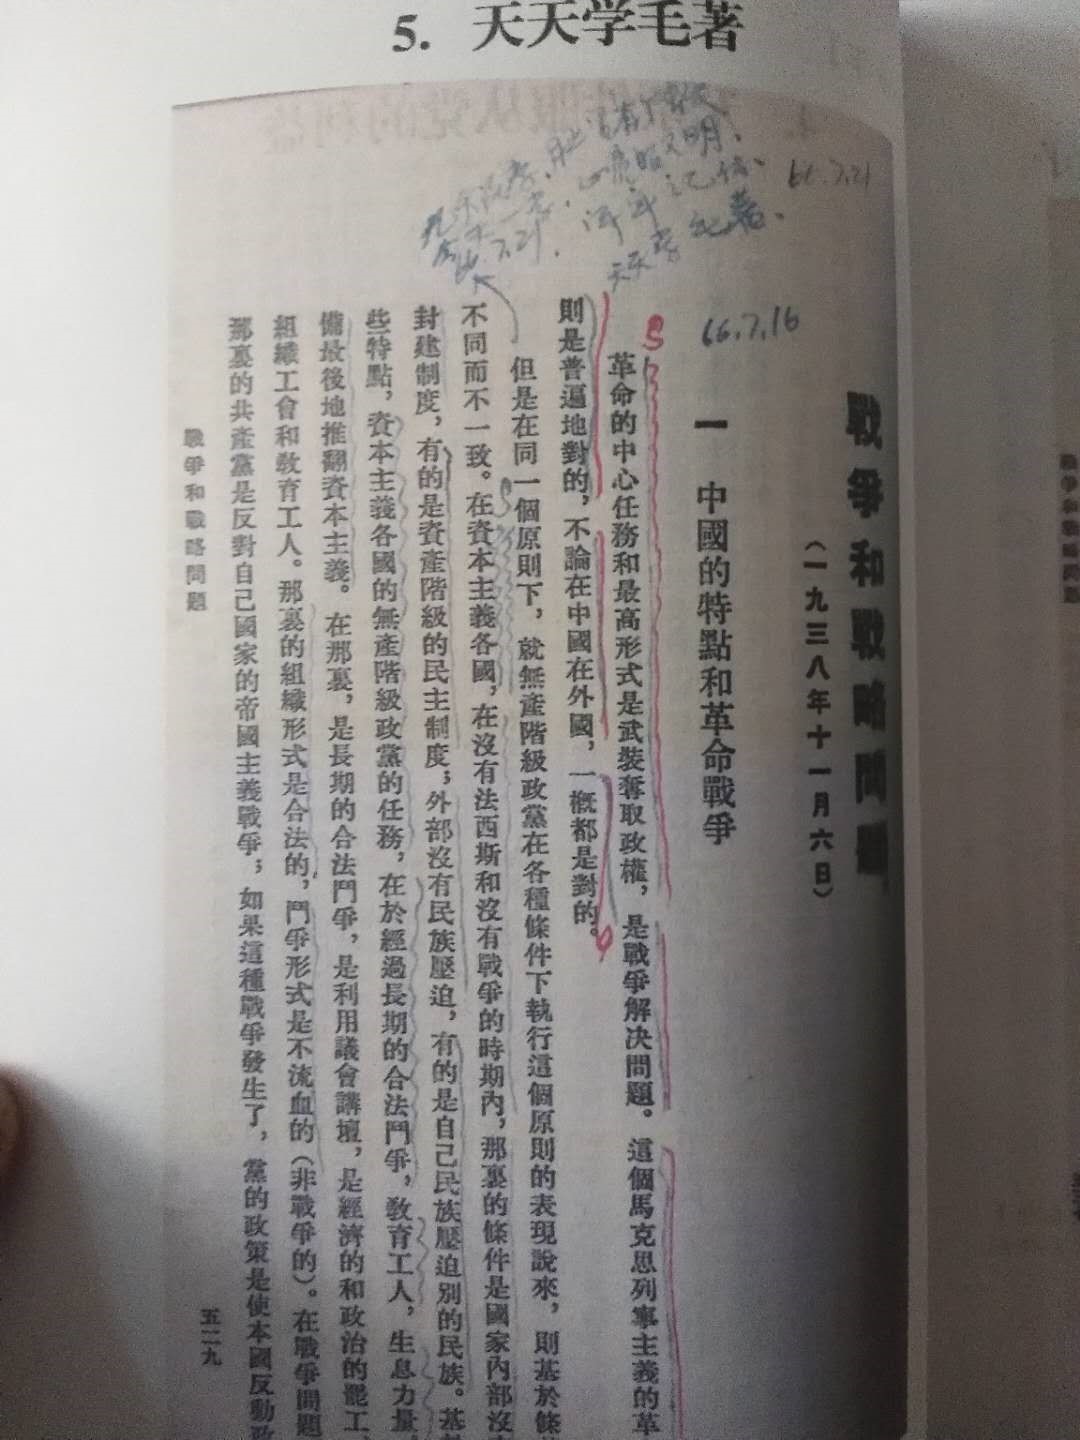 5. 天天学毛著
66.7.21
66.7.16
戰爭和戰略問題
（一九三八年十一月六日）
一 中國的特點和革命戰爭
革命的中心任務和最高形式是武裝奪取政權，是戰爭解決問題。這個馬克思列寧主義的革
則是普遍地對的，不論在中國在外國，一概都是對的。
但是在同一個原則下，就無產階級政黨在各種條件下執行這個原則的表現說來，則基於條
不同而不一致。在資本主義各國，在沒有法西斯和沒有戰爭的時期內，那裏的條件是國家內部沒
封建制度，有的是資產階級的民主制度；外部沒有民族壓迫，有的是自己民族壓迫別的民族。基
些特點，資本主義各國的無產階級政黨的任務，在於經過長期的合法鬥爭，教育工人，生息力量，
備最後地推翻資本主義。在那裏，是長期的合法鬥爭，是利用議會講壇，是經濟的和政治的罷工，
組織工會和教育工人。那裏的組織形式是合法的，鬥爭形式是不流血的（非戰爭的）。在戰爭問題
那裏的共產黨是反對自己國家的帝國主義戰爭；如果這種戰爭發生了，黨的政策是使本國反動政
戰爭和戰略問題
五二九